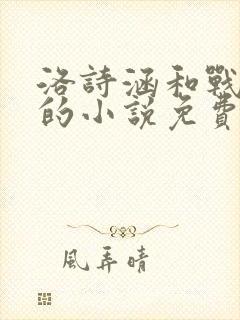 洛詩涵和戰
的小說免費
風弄晴